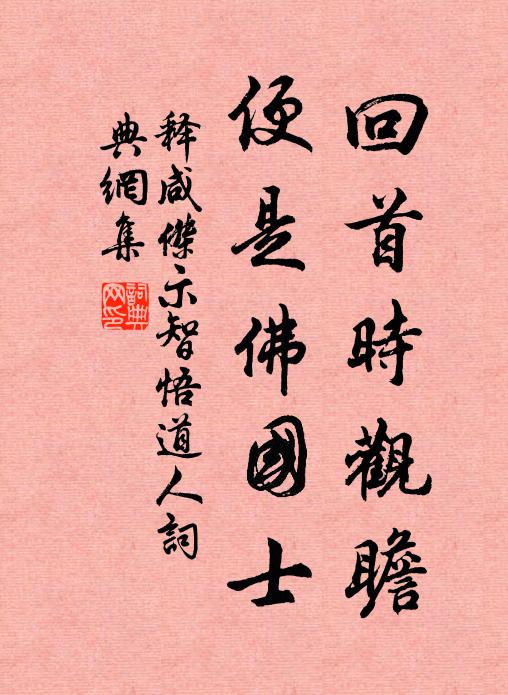 回首時觀瞻
便是佛國士
释咸傑示智悟道人詞
典網集
詞典網印